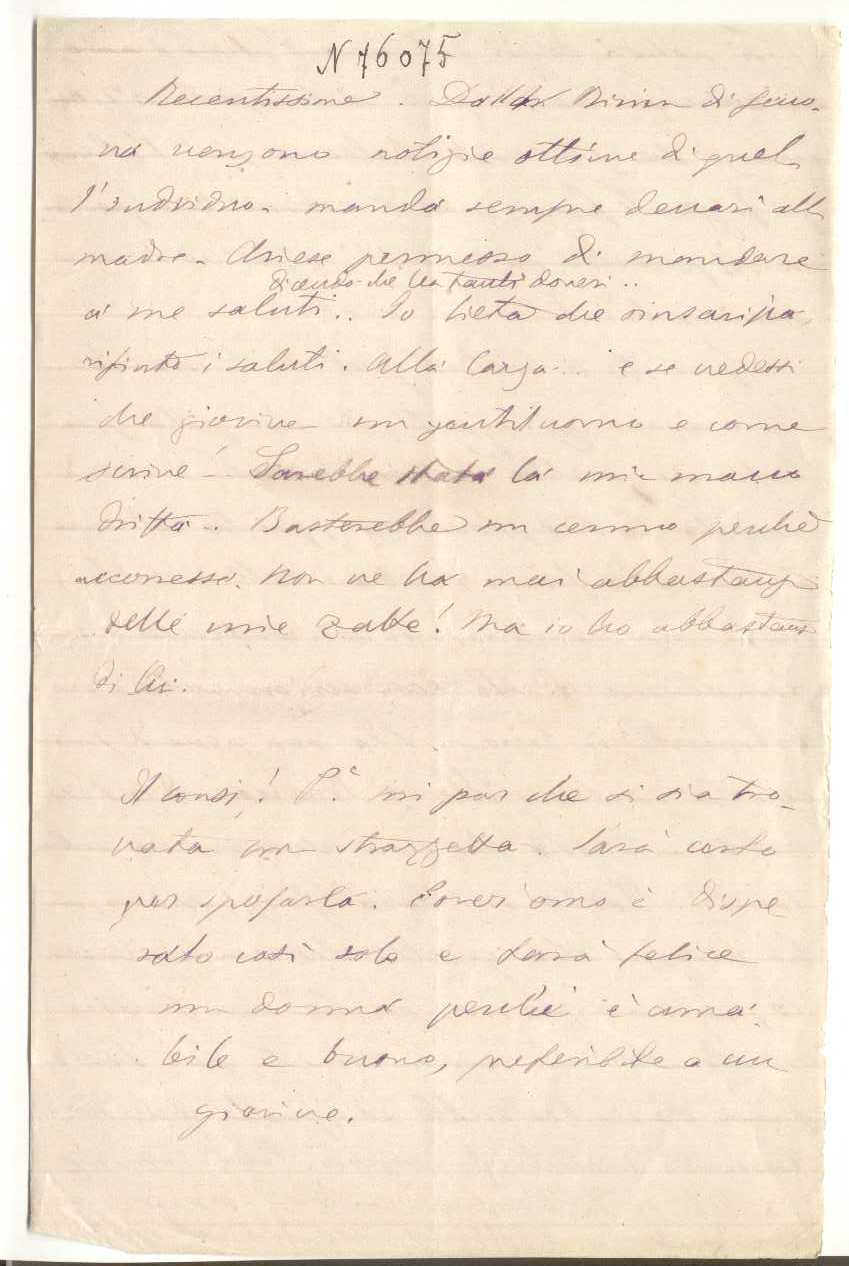 N 76075
Recentissime. Dalla Rimin di Geno-
va vengono notizie ottime di quel
l'individuo. manda sempre denari alla
madre. Chiese permesso di mandare
dicendo che ha tanti doveri..
a me saluti.. Io lieta che
rifiuto i saluti. Alla larga... e se vedessi
che giovine un gentiluomo e come
scrive! Sarebbe stata la mia mano
dritta.. Basterebbe un cenno perché
accorresse. Non ne ha mai abbastanza
delle mie zatte! Ma io ho abbastanza
di lui.
Il consi! mi par che si sia tro-
vata una strazzetta. Sarà certo
per sposarla. Pover'omo è dispe-
rato così solo e farà felice
una donna perché è ama-
bile e buono, preferibile a un
giovine.